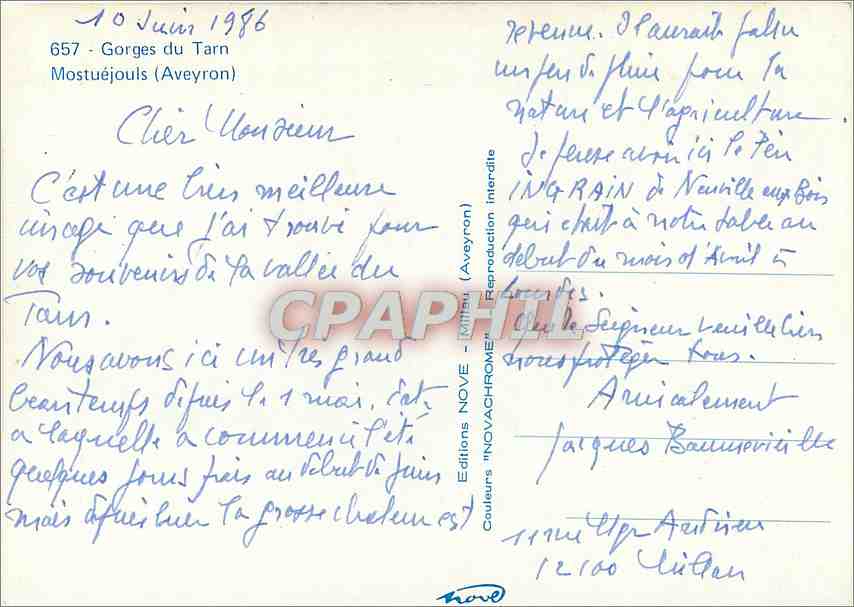 10 Juin 1986
657 - Gorges du Tarn
Mostuéjouls (Aveyron)
Cher Monsieur
C'est une bien meilleure
image que j'ai trouvé pour
vos souvenirs de la vallée du
Tarn.
Nous avons ici un très grand
beau temps depuis le 1 mai, date
a laquelle a commencé l'été
quelques jours frais au début de juin
mais depuis hier la grosse chaleur est
revenue. Il aurait fallu
un peu de pluie pour la
nature et l'agriculture.
Je pense avoir ici le Père
INGRAIN de Neuville aux Bois
qui était à notre table au
début du mois d'Avril à
Lourdes.
Que le Seigneur veuille bien
nous protéger tous.
Amicalement
Jacques
11 rue Mgr
12100 Millau
Editions NOVE - Millau (Aveyron)
Couleurs "NOVACHROME" Reproduction interdite
CPAPHIL
nove